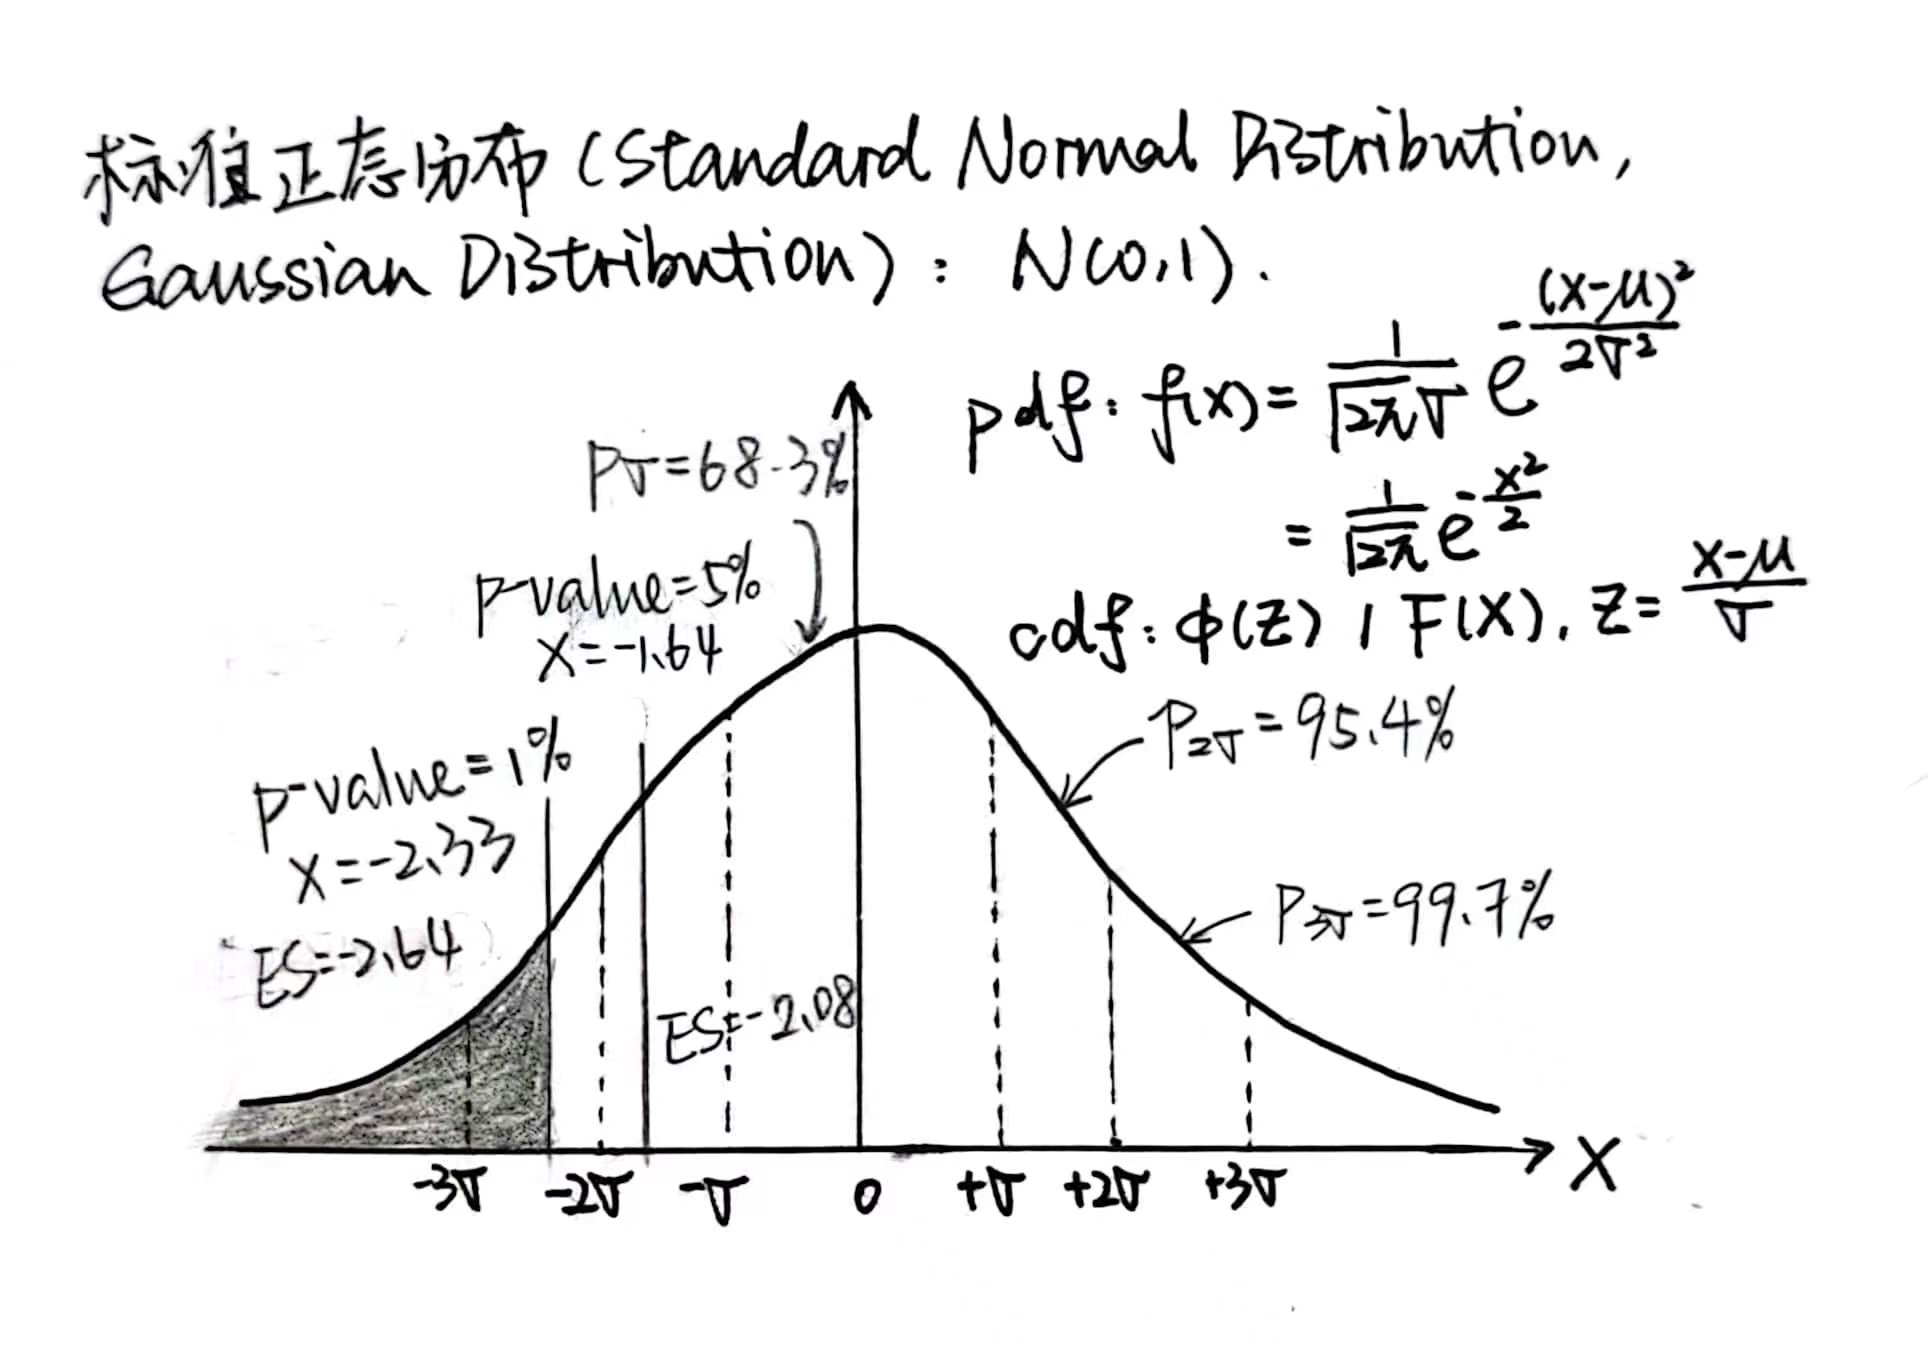 标准正态分布 (Standard Normal Distribution,
Gaussian Distribution) : N(0,1).
pdf: f(x) = 1/(√2π σ) e^-(x-μ)²/2σ²
= 1/√2π e^-x²/2
cdf: Φ(Z) / F(X), Z = (x-μ)/σ
Pσ=68.3%
p-value=5%
X=-1.64
P2σ=95.4%
p-value=1%
X=-2.33
ES=-2.64
P3σ=99.7%
ES=-2.08
-3σ -2σ -σ 0 +σ +2σ +3σ X